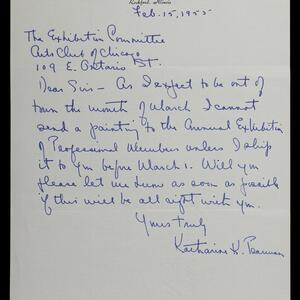 Rockford, Illinois
Feb. 15, 1955
The Exhibition Committee
Arts Club of Chicago
109 E. Ontario St.
Dear Sirs – As I expect to be out of
town the month of March I cannot
send a painting to the Annual Exhibition
of Professional Members unless I ship
it to you before March 1. Will you
please let me know as soon as possible
if this will be all right with you.
Yours truly
Katharine K.